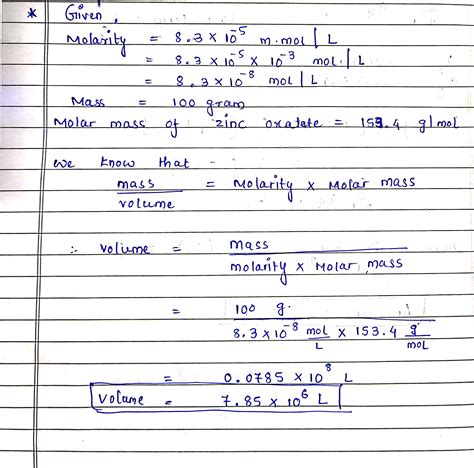 * Given,
Molarity = 8.3 × 10⁻⁵ m.mol | L
= 8.3 × 10⁻⁵ × 10⁻³ mol. | L
= 8.3 × 10⁻⁸ mol | L
Mass = 100 gram
Molar mass of zinc oxalate = 153.4 g|mol
we know that -
mass / volume = Molarity × Molar mass
∴ volume = mass / molarity × Molar mass
= 100 g. / 8.3 × 10⁻⁸ mol/L × 153.4 g/mol
= 0.0785 × 10⁸ L
volume = 7.85 × 10⁶ L